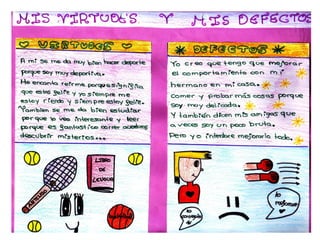 MIS VIRTUDES Y MIS DEFECTOS
VIRTUDES
A mi se me da muy bien hacer deporte
porque soy muy deportiva.
Me encanta reirme porque significa
que estas feliz y yo siempre me
estoy riendo y siempre estoy feliz.
Tambien se me da bien estudiar
por que lo veo interesante y leer
porque es fantastico correr
descubrir misterios...
LIBRO
DE
LENGUA
DEFECTOS
Yo creo que tengo que mejorar
el comportamiento con mi
hermano en mi casa.
comer y probar más cosas porque
soy muy delicada.
Y también dicen mis amigas que
a veces soy un poco bruta.
Pero yo intentare mejorarlo todo.